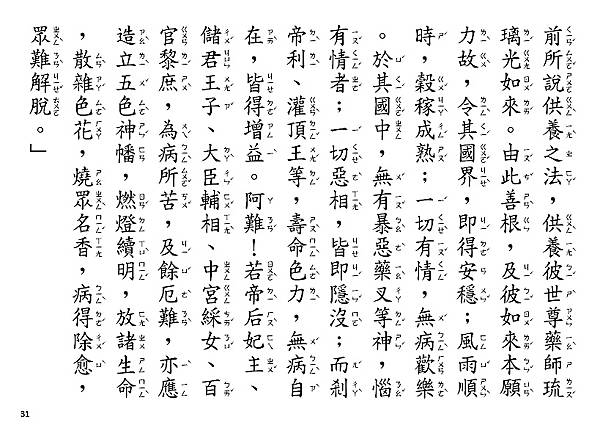 前所說供養之法，供養彼世尊藥師琉
璃光如來。由此善根，及彼如來本願
力故，令其國界，即得安穩；風雨順
時，穀稼成熟；一切有情，無病歡樂
。於其國中，無有暴惡藥叉等神，惱
有情者；一切惡相，皆即隱沒；而剎
帝利、灌頂王等，壽命色力，無病自
在，皆得增益。阿難！若帝后妃主、
儲君王子、大臣輔相、中宮綵女、百
官黎庶，為病所苦，及餘厄難，亦應
造立五色神幡，燃燈續明，放諸生命
，散雜色花，燒眾名香，病得除愈，
眾難解脫。」
31